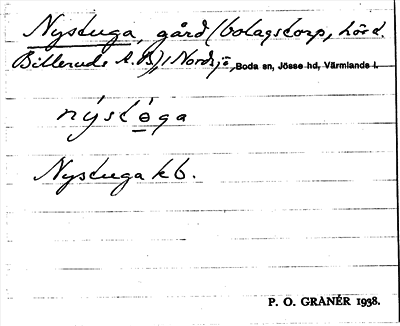 Nystuga, gård (bolagstorp, hörd.
Billeruds A.B.), i Nordsjö, Boda sn, Jösse hd, Värmlands l.
nýstòga
Nystuga kb.
P. O. GRANÉR 1938.